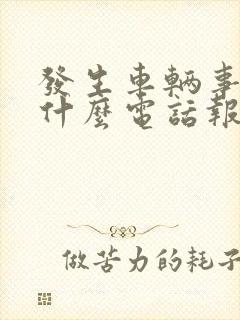 發生車輛事
什麼電話報
做苦力的耗子